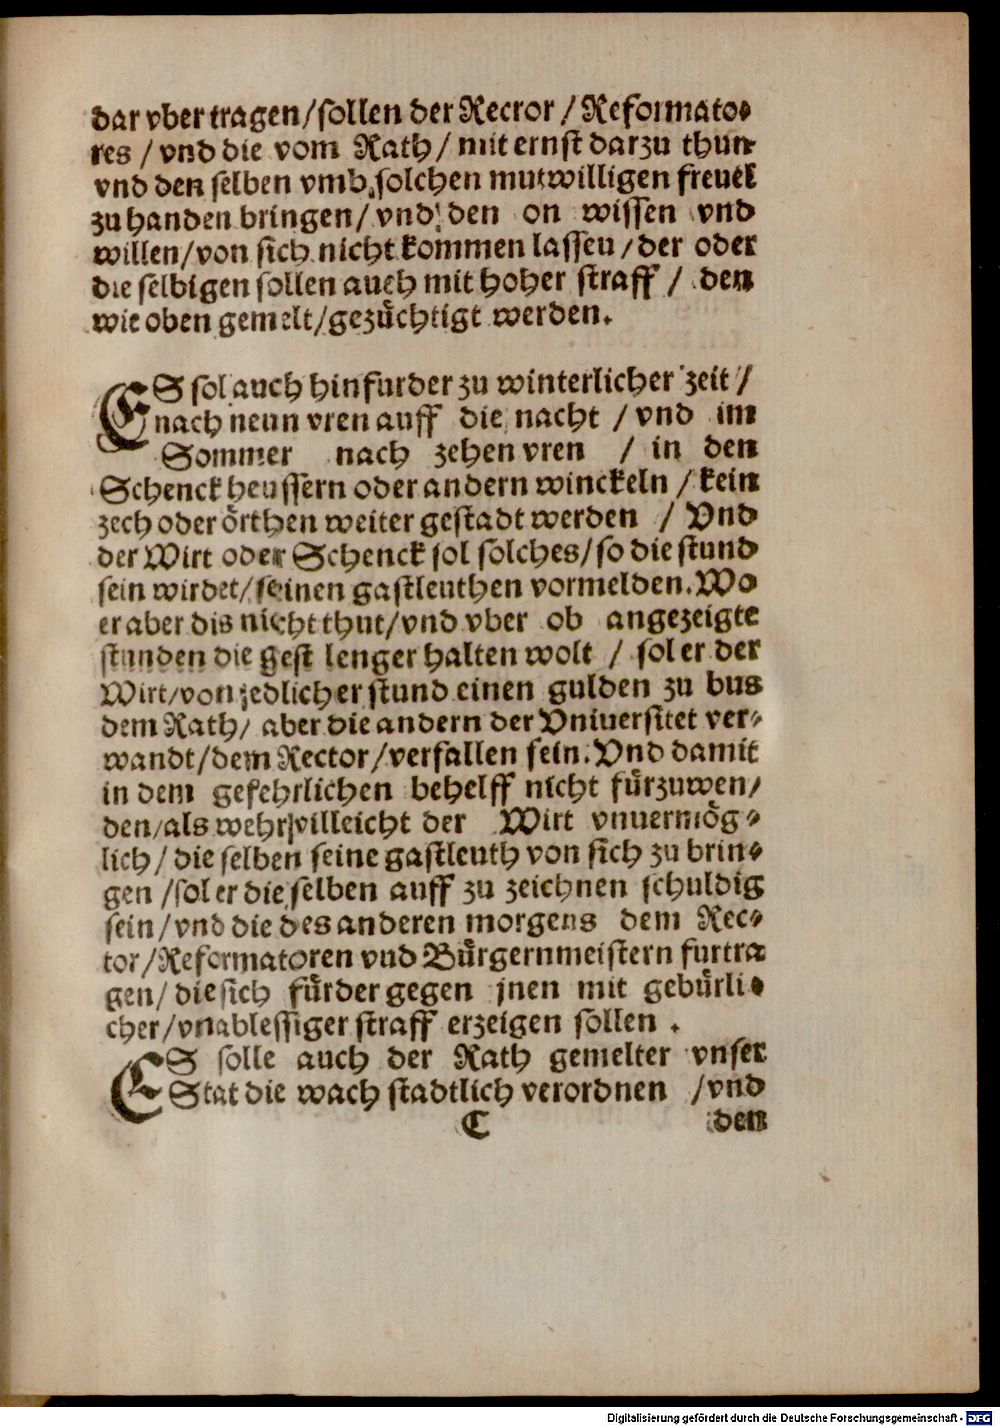 dar vber tragen/sollen der Recror / Reformato⸗
res / vnd die vom Rath/ mit ernst darzu thun
vnd den selben vmb solchen mutwilligen freuel
zu handen bringen/ vnd den on wissen vnd
willen/von sich nicht kommen lassen/der oder
die selbigen sollen auch mit hoher straff / den
wie oben gemelt/gezůchtigt werden.
ES sol auch hinfurder zu winterlicher zeit /
nach neun vren auff die nacht / vnd im
Sommer nach zehen vren / in den
Schenckheussern oder andern winckeln / kein
zech oder örthen weiter gestadt werden / Vnd
der Wirt oder Schenck sol solches/so die stund
sein wirdet/seinen gastleuthen vormelden. Wo
er aber dis nicht thut/vnd vber ob angezeigte
stunden die gest lenger halten wolt / sol er der
Wirt/von jedlicher stund einen gulden zu bus
dem Rath/ aber die andern der Vniuersitet ver⸗
wandt/dem Rector/verfallen sein. Vnd damit
in dem gefehrlichen behelff nicht fürzuwen/
den/als wehr villeicht der Wirt vnuermög⸗
lich/ die selben seine gastleuth von sich zu brin⸗
gen /sol er die selben auff zu zeichnen schuldig
sein/vnd die des anderen morgens dem Rec⸗
tor/Reformatoren vnd Bürgernmeistern furtra
gen/ die sich fürder gegen jnen mit gebürli⸗
cher/vnablessiger straff erzeigen sollen .
ES solle auch der Rath gemelter vnser
Stat die wach stadtlich verordnen /vnd
C den
Digitalisierung gefördert durch die Deutsche Forschungsgemeinschaft - DFG